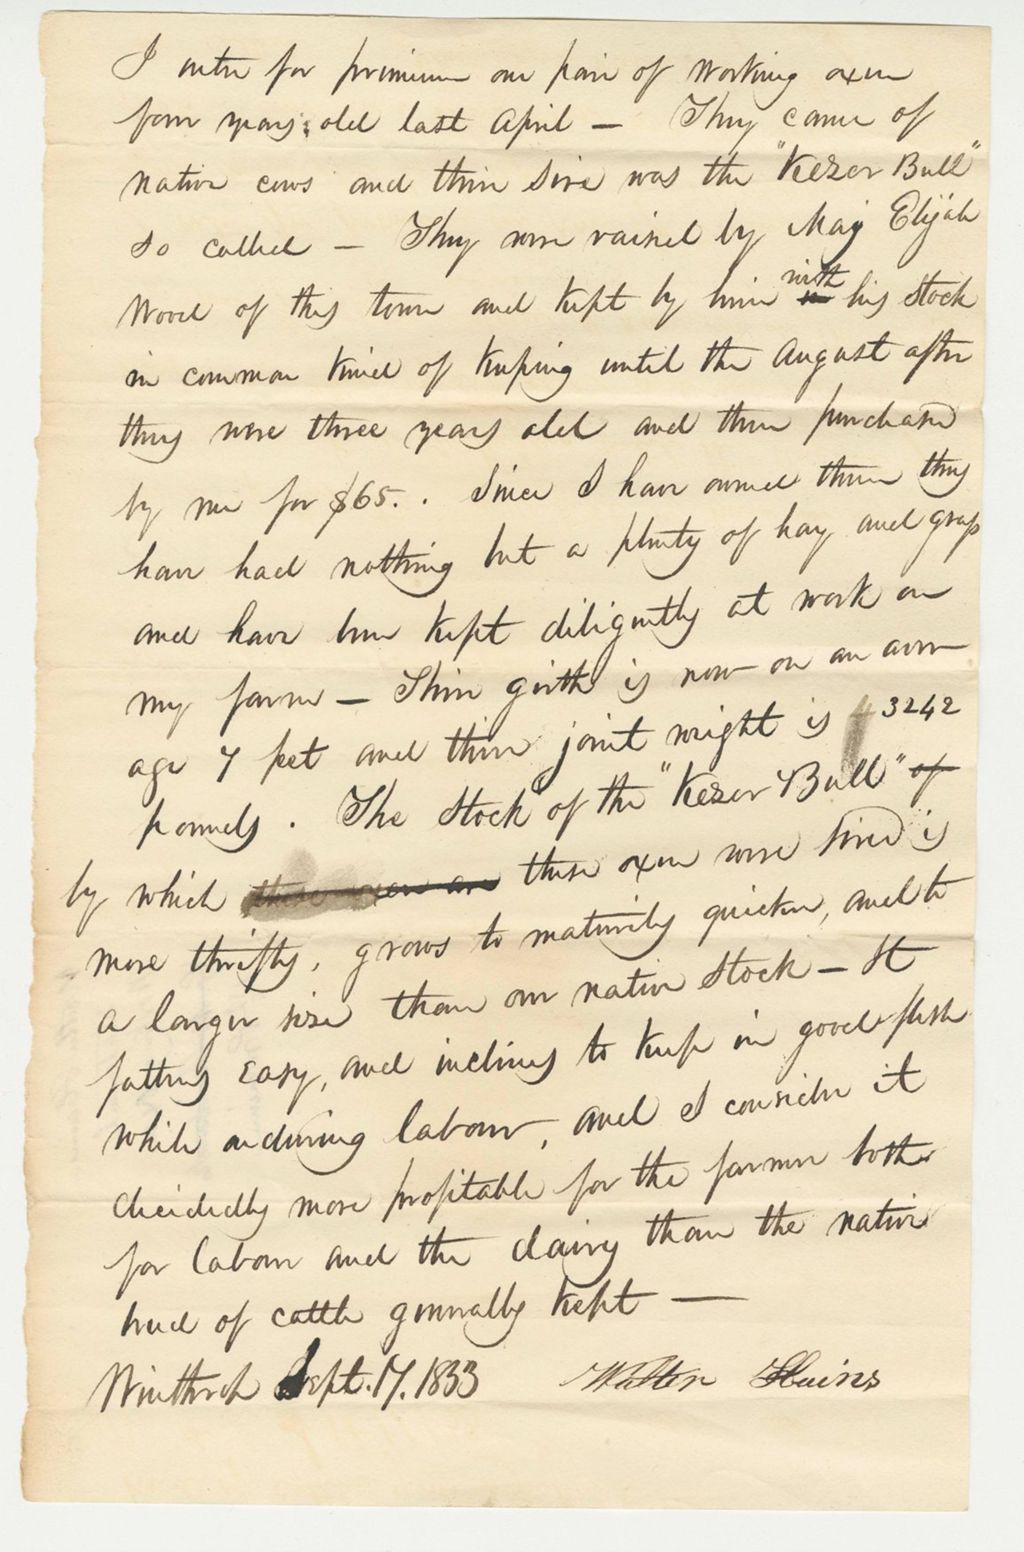 I enter for primium one pair of working oxen
four years old last April — They came of
native cows and their Sire was the "Kezer Bull"
so called — They were raised by Maj Elijah
Wood of this town and kept by him with his Stock
in common kind of keeping until the August after
they were three years old and then purchased
by me for $65. . Since I have owned them they
have had nothing but a plenty of hay and grass
and have been kept diligently at work on
my farm — Their girth is now on an aver
age 7 feet and their joint weight is 3242
pounds . The Stock of the "Kezer Bull" of
by which these oxen are these oxen were sired is
more thrifty, grows to maturity quicker, and to
a larger size than our native Stock — It
fattens easy, and inclines to keep in good flesh
while enduring labour, and I consider it
decidedly more profitable for the farmer both
for labour and the dairy than the native
breed of cattle generally kept —
Winthrop Sept. 17. 1833 Walter Haines